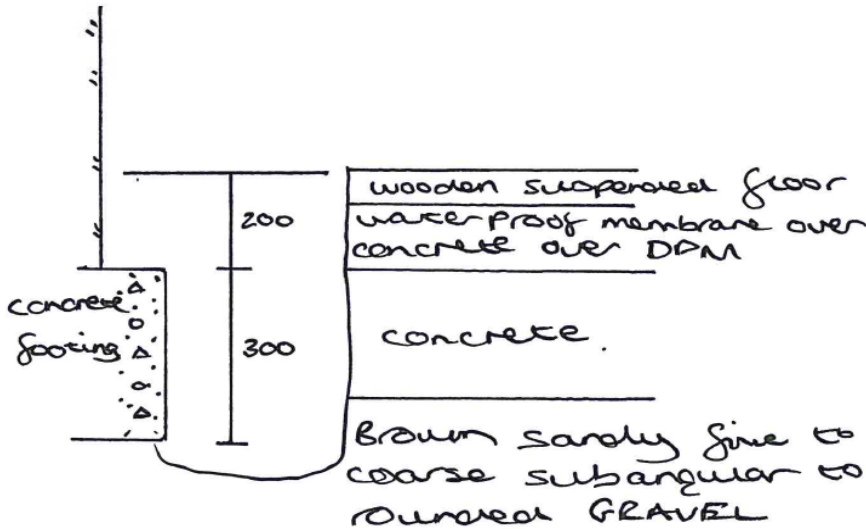 wooden suspended floor
200
waterproof membrane over
concrete over DPM
concrete
footing
300
concrete.
Brown sandy fine to
coarse subangular to
rounded GRAVEL